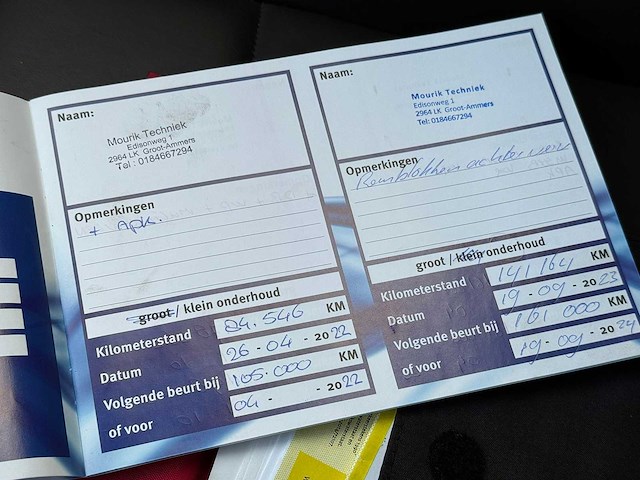 Naam:
Mourik Techniek
Edisonweg 1
2964 LK Groot-Ammers
Tel : 0184667294
Opmerkingen
+ Apk.
groot / klein onderhoud
Kilometerstand 84.546 KM
Datum 26-04-2022
Volgende beurt bij 105.000 KM
of voor 04 - - 2022
Naam:
Mourik Techniek
Edisonweg 1
2964 LK Groot-Ammers
Tel: 0184667294
Opmerkingen
Remblokken achter
groot / klein onderhoud
Kilometerstand 141164 KM
Datum 19-09-2023
Volgende beurt bij 161 000 KM
of voor 19-09-2024